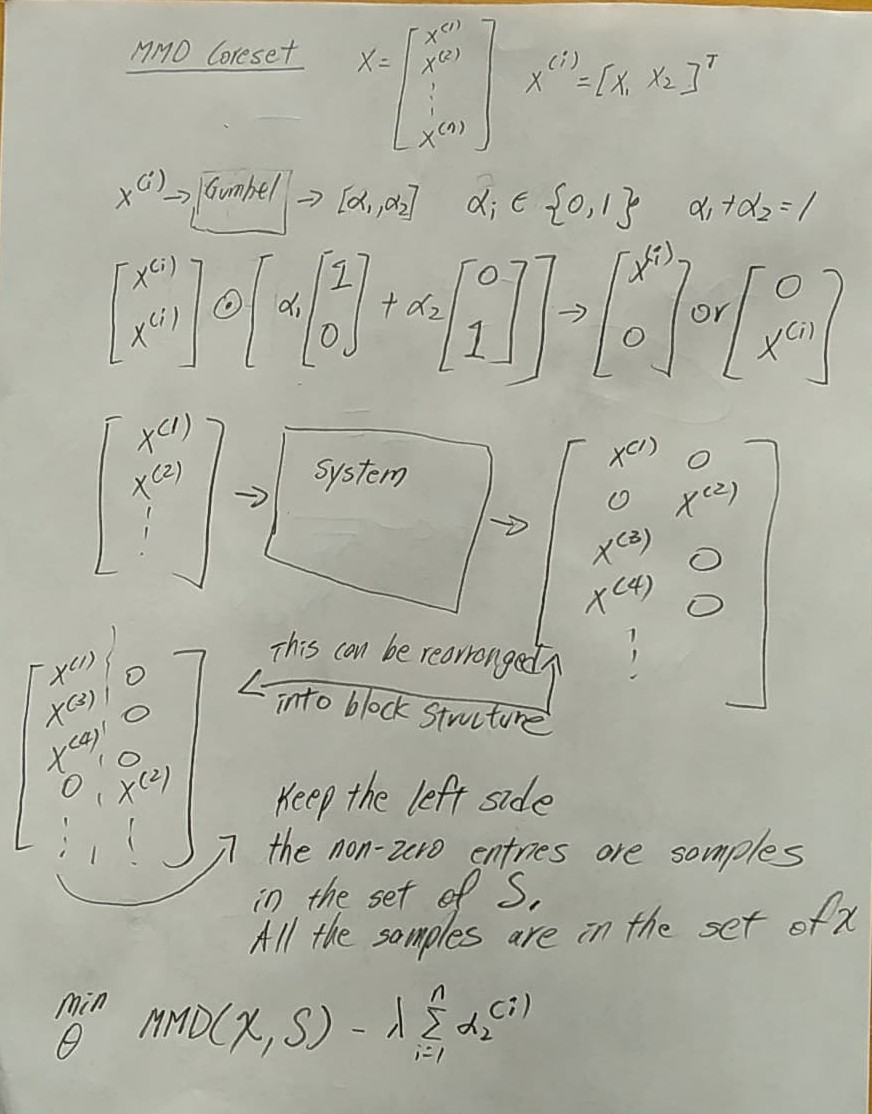 MMD Coreset X = [ x^(1) x^(2) ⋮ x^(n) ] x^(i) = [x₁ x₂]^T
x^(i) → Gumbel → [α₁, α₂] αᵢ ∈ {0,1} α₁+α₂=1
[ x^(i) x^(i) ] ⊙ [ α₁ [ 1 0 ] + α₂ [ 0 1 ] ] → [ x^(i) 0 ] or [ 0 x^(i) ]
[ x^(1) x^(2) ⋮ ] → System → [ x^(1) 0
0 x^(2)
x^(3) 0
x^(4) 0
⋮ ]
This can be rearranged
into block structure
[ x^(1) 0
x^(3) 0
x^(4) 0
0 x^(2)
⋮ ⋮ ]
Keep the left side
the non-zero entries are samples
in the set of S.
All the samples are in the set of X
min θ MMD(X, S) - λ Σ_{i=1}^{n} α₂^(i)